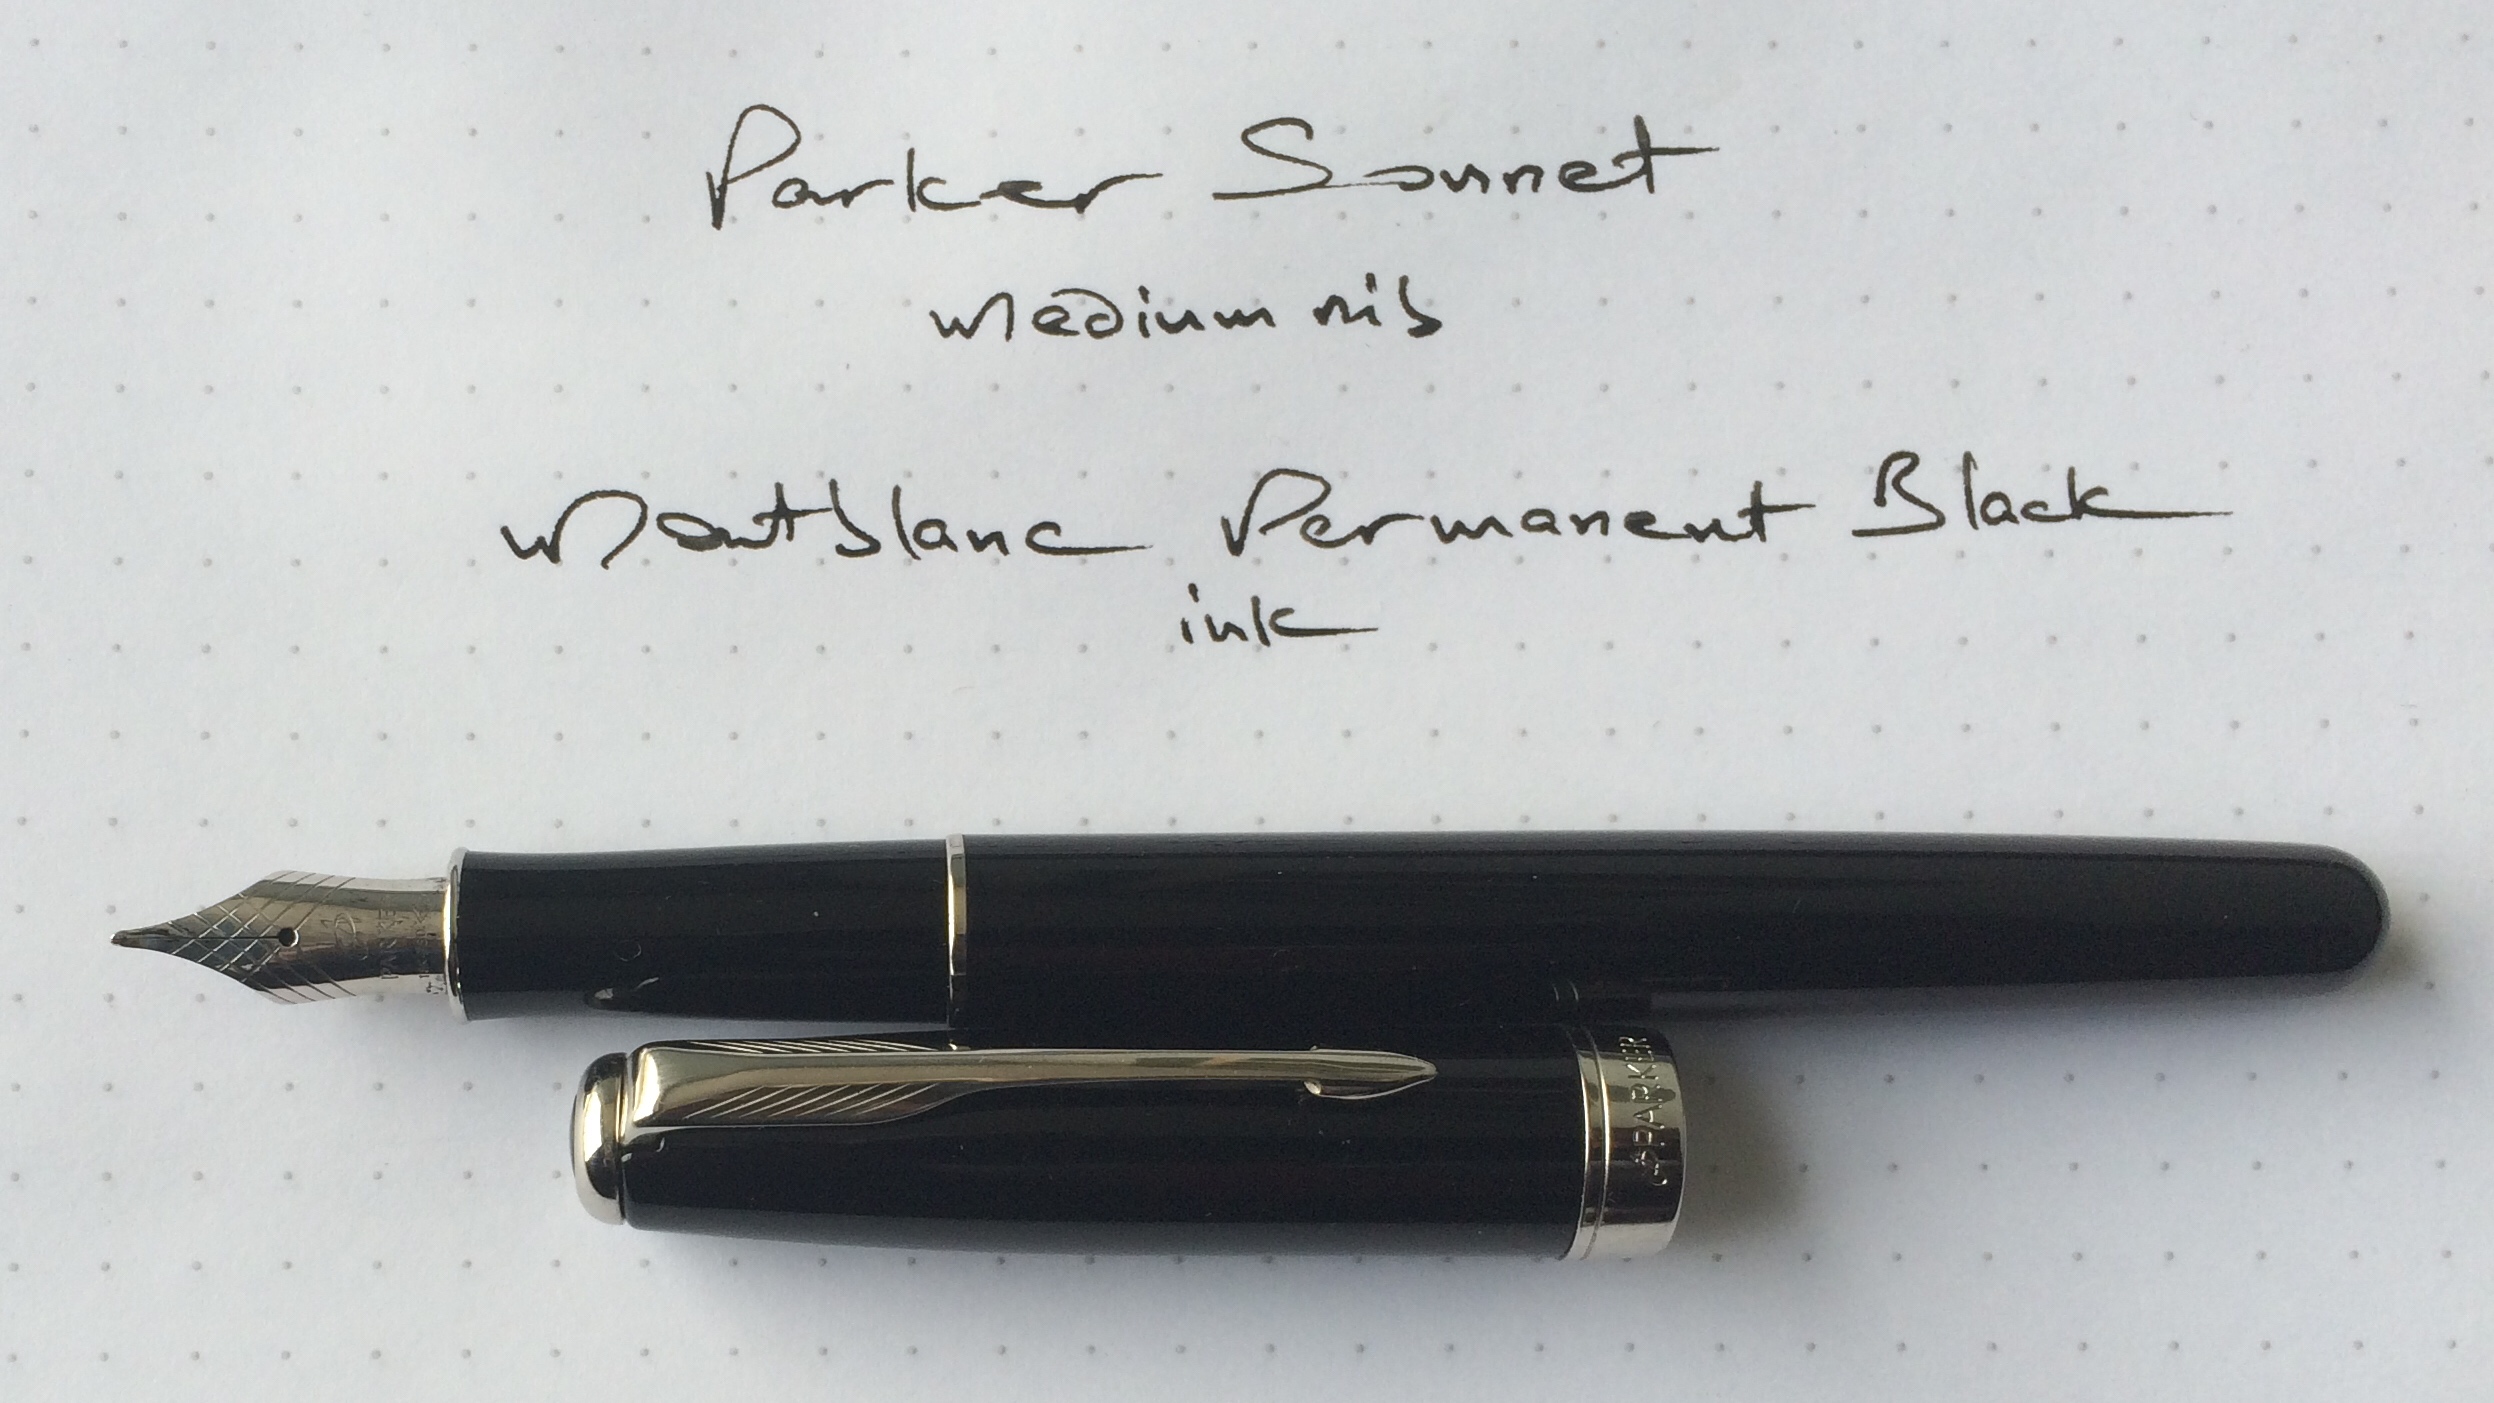 Parker Sonnet
Medium nib
Montblanc Permanent Black
ink
PARKER
PARKER